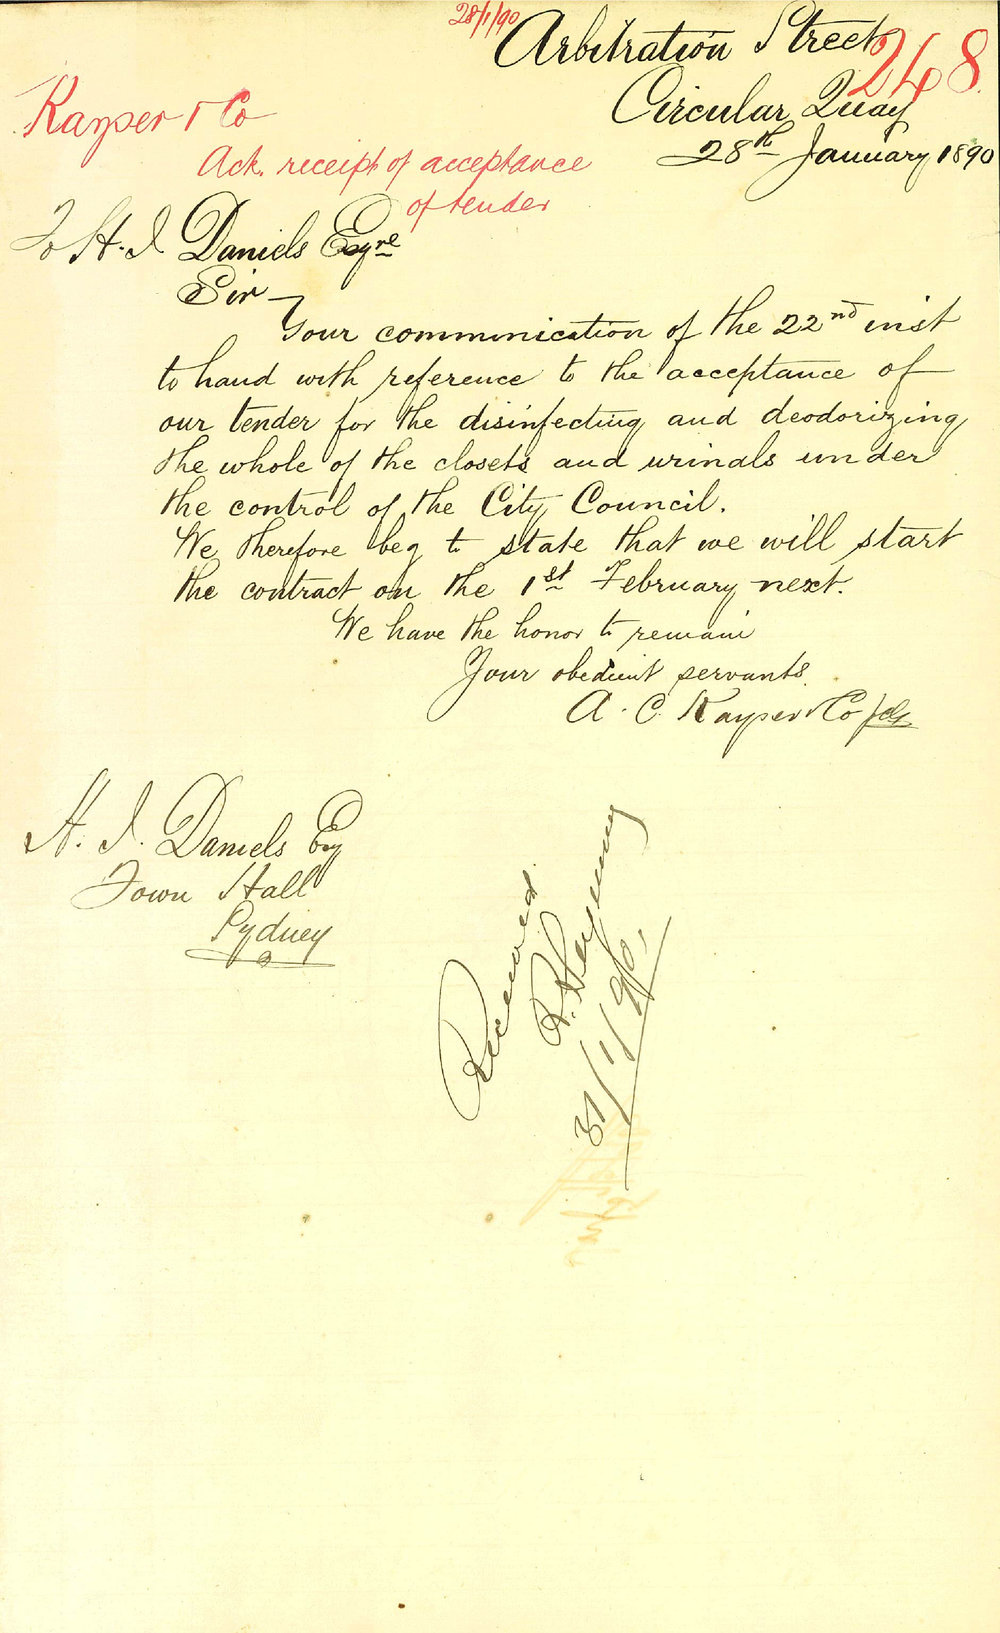 28/1/90
Arbitration Street
248
Circular Quay
28th January 1890
Kayser & Co
Ack. receipt of acceptance
of tender
To H. J. Daniels Esqre
Sir
Your communication of the 22nd inst
to hand with reference to the acceptance of
our tender for the disinfecting and deodorizing
the whole of the closets and urinals under
the control of the City Council.
We therefore beg to state that we will start
the contract on the 1st February next.
We have the honor to remain
Your obedient servants
A. C. Kayser & Co
H. J. Daniels Esq
Town Hall
Sydney
Received
31/1/90.